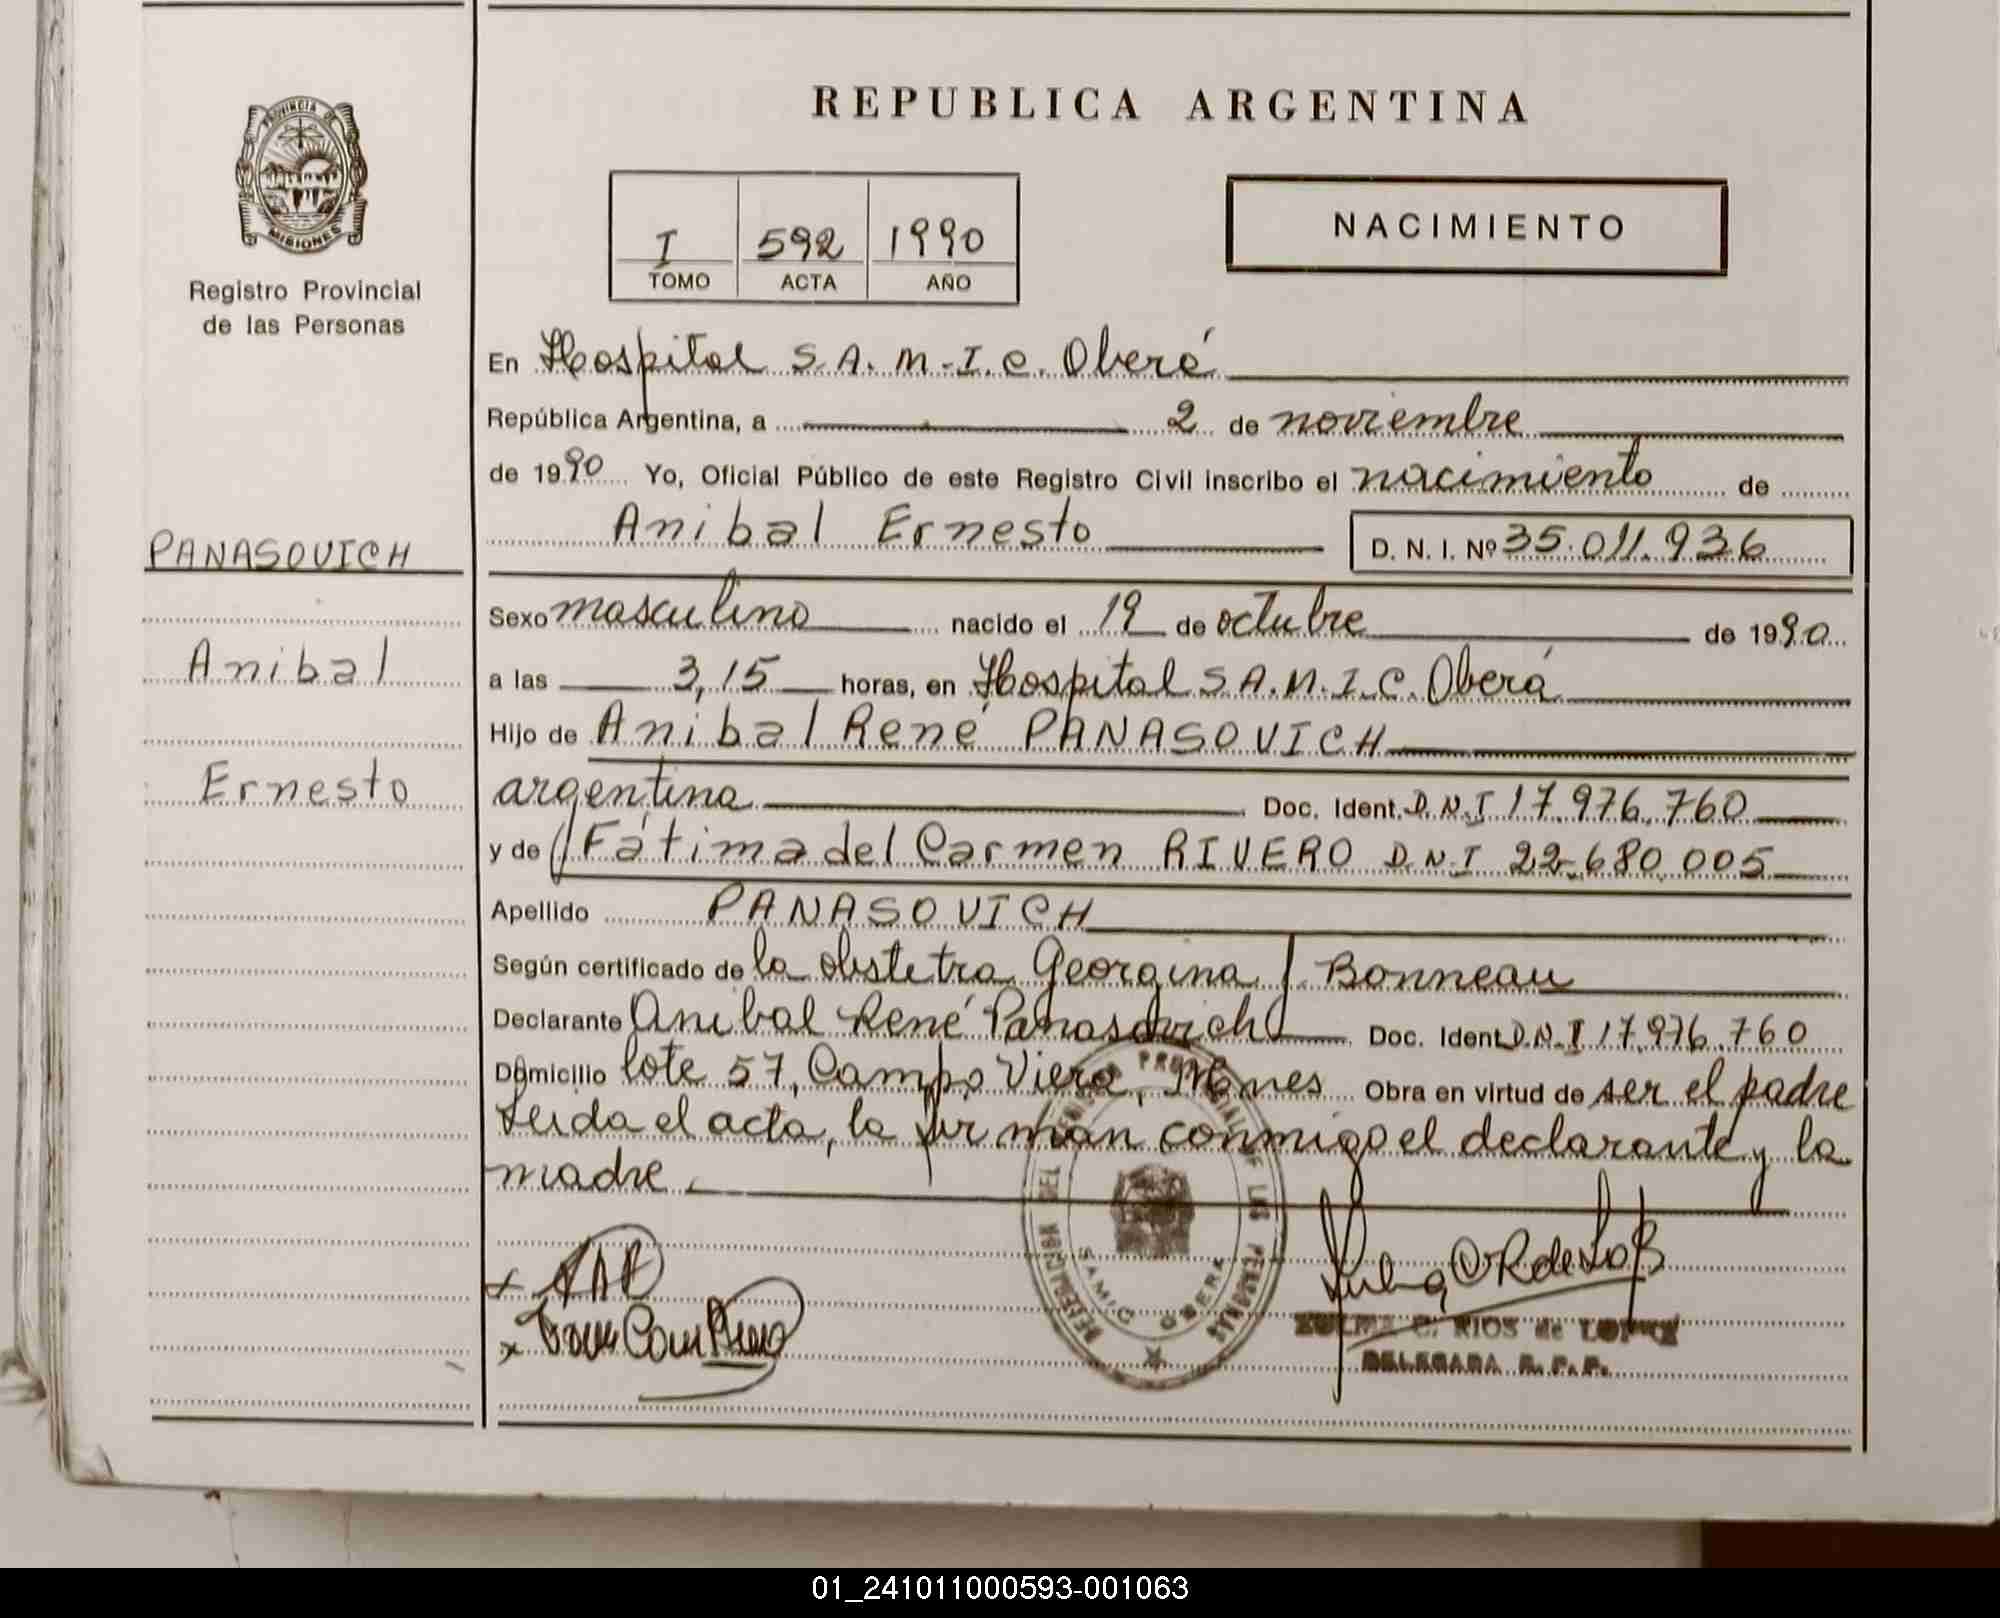 REPUBLICA ARGENTINA
PROVINCIA DE
MISIONES
Registro Provincial
de las Personas
I 592 1990
TOMO ACTA AÑO
NACIMIENTO
En Hospital S.A.M.I.C. Oberá
República Argentina, a 2 de noviembre
de 1990 Yo, Oficial Público de este Registro Civil inscribo el nacimiento de
Anibal Ernesto D. N. I. Nº 35.011.936
PANASOVICH
Anibal
Ernesto
Sexo masculino nacido el 19 de octubre de 1990
a las 3,15 horas, en Hospital S.A.M.I.C. Oberá
Hijo de Anibal René PANASOVICH
argentina Doc. Ident. D.N.I 17.976.760
y de Fátima del Carmen RIVERO D.N.I 22.680.005
Apellido PANASOVICH
Según certificado de la obstetra Georgina J. Bonneau
Declarante Anibal René Panasovich Doc. Ident D.N.I 17.976.760
Domicilio lote 57, Campo Viera, Mnes Obra en virtud de ser el padre
Leida el acta, la firman conmigo el declarante y la
madre.
DELEGACION DEL REGISTRO PROVINCIAL DE LAS PERSONAS
SAMIC OBERA
ZULMA C. RIOS de LOPEZ
DELEGADA R. P. P.
01_241011000593-001063